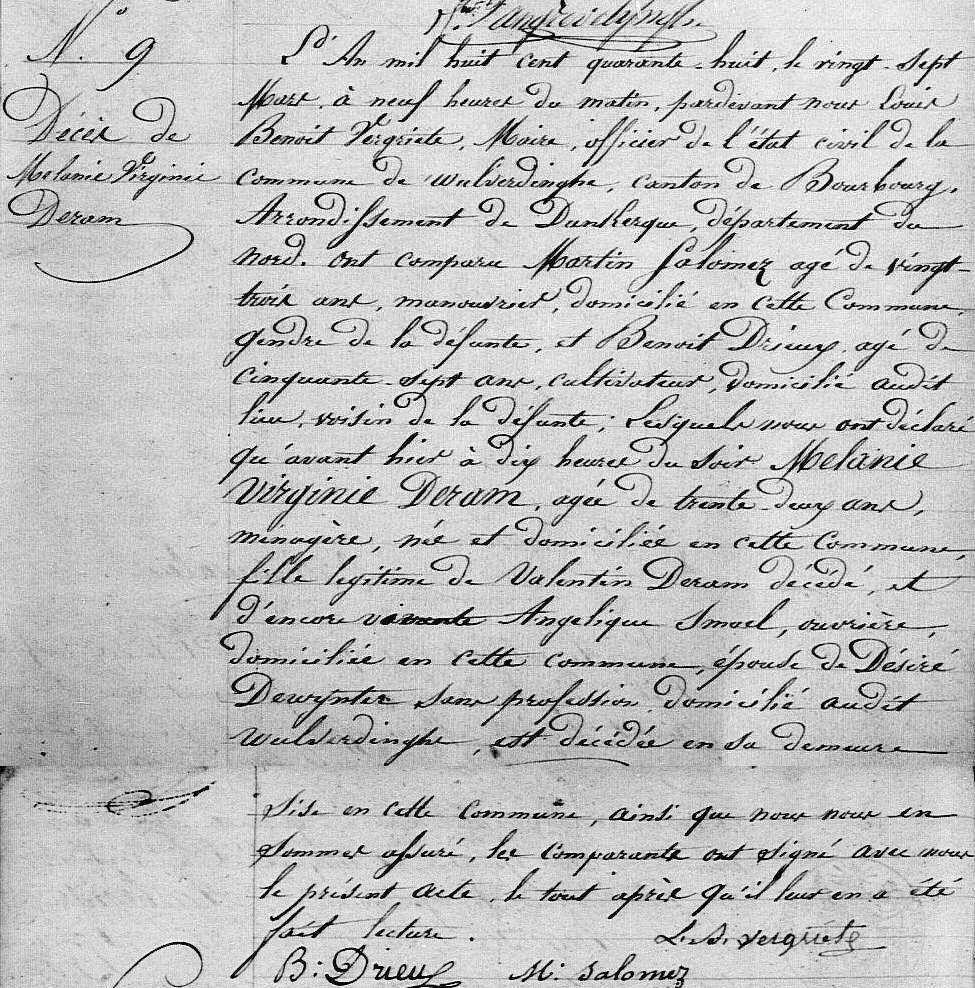 N.° 9
Décès de
Melanie Virginie
Deram
L'An mil huit cent quarante-huit, le vingt-sept
Mars, à neuf heures du matin, pardevant nous Louis
Benoit Vergriete, Maire, officier de l'état civil de la
commune de Wulverdinghe, canton de Bourbourg,
Arrondissement de Dunkerque, département du
nord. ont comparu Martin Salomez agé de vingt-
trois ans, manouvrier, domicilié en cette Commune,
gendre de la défunte, et Benoit Drieux, agé de
cinquante-sept ans, cultivateur, domicilié audit
lieu, voisin de la défunte; Lesquels nous ont déclaré
qu'avant hier à dix heures du soir Melanie
Virginie Deram, agée de trente-deux ans,
ménagère, née et domiciliée en cette Commune,
fille legitime de Valentin Deram décédé, et
d'encore vivante Angelique Smael, ouvrière,
domiciliée en cette commune, épouse de Désiré
Dewynter sans profession, domicilié audit
Wulverdinghe, est décédée en sa demeure
sise en cette Commune, ainsi que nous nous en
sommes assuré, les Comparants ont signé avec nous
le présent acte, le tout après qu'il leur en a été
fait lecture.
L. B. Vergriete
B: Drieux M: Salomez